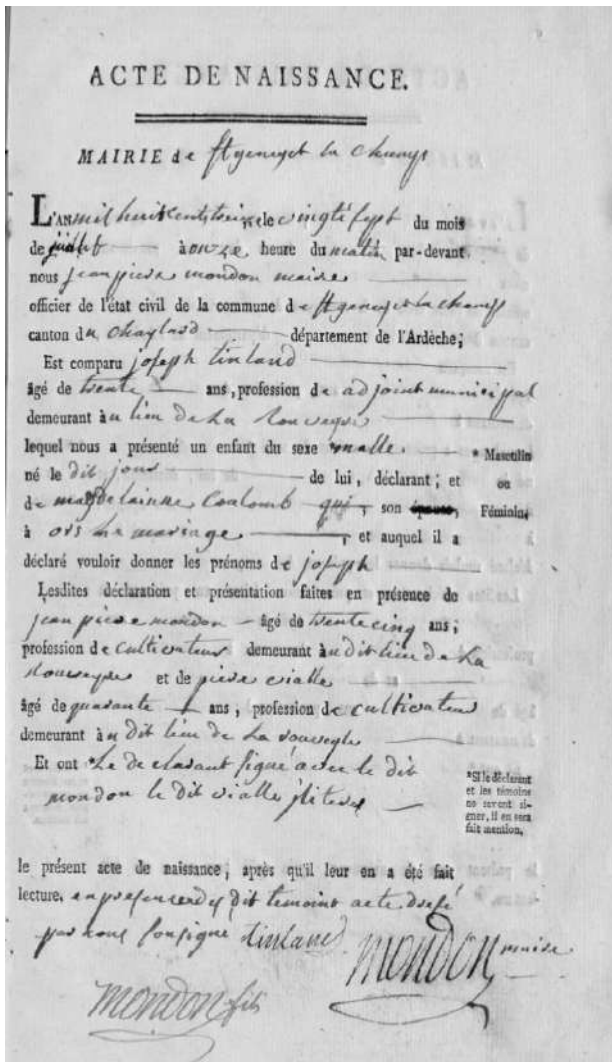 ACTE DE NAISSANCE.
MAIRIE de St genest la champ
L'AN mil huit cent treize, le vingt sept du mois
de juillet à onze heure du matin par-devant
nous jean piere mondon maire
officier de l'état civil de la commune de St genest la champ
canton du chaylard département de l'Ardèche;
Est comparu joseph tinland
âgé de trente ans, profession de adjoint municipal
demeurant àu lieu de La
lequel nous a présenté un enfant du sexe malle * Masculin
né le dit jour de lui, déclarant; et ou
de magdelainne Coulomb qui, son épouse, Féminin,
à ors le mariage, et auquel il a
déclaré vouloir donner les prénoms de joseph
Lesdites déclaration et présentation faites en présence de
jean piere mondon âgé de trente cinq ans;
profession de cultivateur demeurant àu dit lieu de La
et de piere vialle
âgé de quarante ans, profession de cultivateur
demeurant àu dit lieu de La
Et ont Le declarant signé avec le dit
mondon le dit vialle
*Si le déclarant
et les témoins
ne savent si-
gner, il en sera
fait mention,
le présent acte de naissance, après qu'il leur en a été fait
lecture. en presence des dit temoint acte dresé
par nous sousigne tinland mondon maire
mondon fils